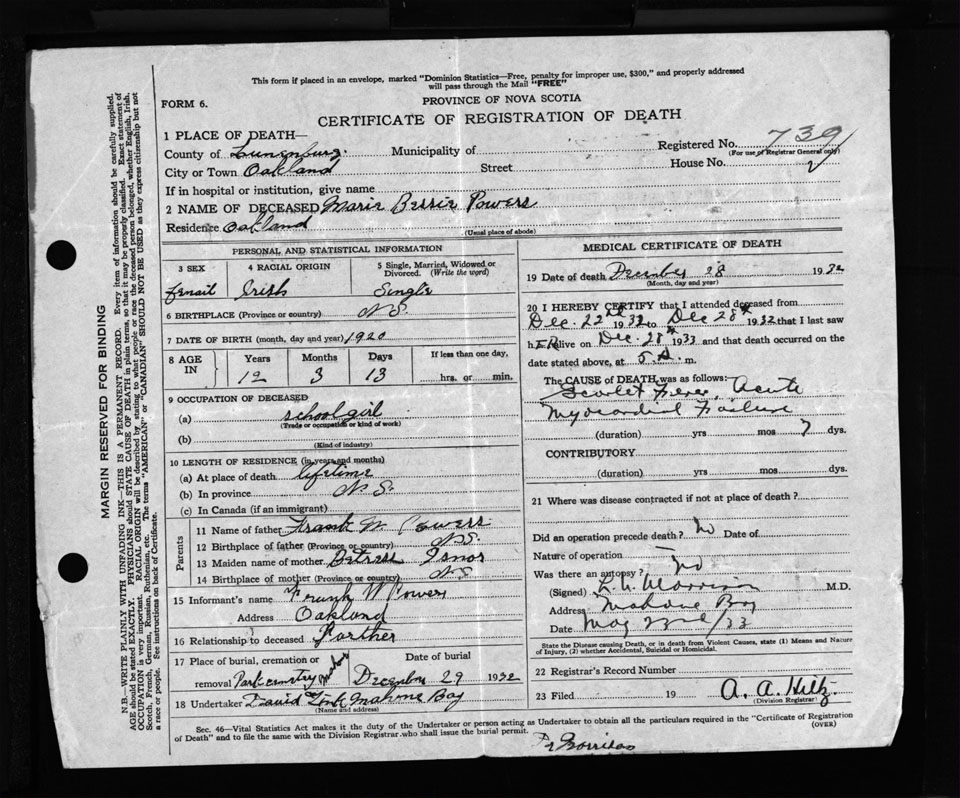 This form if placed in an envelope, marked "Dominion Statistics—Free, penalty for improper use, $300," and properly addressed
will pass through the Mail "FREE"
FORM 6.
PROVINCE OF NOVA SCOTIA
CERTIFICATE OF REGISTRATION OF DEATH
1 PLACE OF DEATH—
Registered No. 739
(For use of Registrar General only)
County of Lunenburg Municipality of
City or Town Oakland Street House No.
If in hospital or institution, give name
2 NAME OF DECEASED Marie Bessie Powers
Residence Oakland
(Usual place of abode)
PERSONAL AND STATISTICAL INFORMATION
3 SEX 4 RACIAL ORIGIN 5 Single, Married, Widowed or Divorced. (Write the word)
femail Irish Single
6 BIRTHPLACE (Province or country) N.S.
7 DATE OF BIRTH (month, day and year) 1920
8 AGE IN Years Months Days If less than one day,
12 3 13 hrs. or min.
9 OCCUPATION OF DECEASED
(a) school girl
(Trade or occupation or kind of work)
(b)
(Kind of industry)
10 LENGTH OF RESIDENCE (in years and months)
(a) At place of death lifetime
(b) In province N.S.
(c) In Canada (if an immigrant)
Parents
11 Name of father Frank W. Powers
12 Birthplace of father (Province or country) N.S.
13 Maiden name of mother
14 Birthplace of mother (Province or country) N.S.
15 Informant's name Frank W Powers
Address Oakland
16 Relationship to deceased Farther
17 Place of burial, cremation or removal Park cemetry Date of burial December 29 1932
18 Undertaker David Mahone Bay
(Name and address)
MEDICAL CERTIFICATE OF DEATH
19 Date of death December 28 1932
(Month, day and year)
20 I HEREBY CERTIFY that I attended deceased from
Dec. 22nd 1932 to Dec 28th 1932 that I last saw
h ER alive on Dec. 28th 1933 and that death occurred on the
date stated above, at 5 A. m.
The CAUSE of DEATH was as follows:
Scarlet Fever, Acute
Myocardial Failure
(duration) yrs mos 7 dys.
CONTRIBUTORY
(duration) yrs mos dys.
21 Where was disease contracted if not at place of death?
Did an operation precede death? No Date of
Nature of operation —
Was there an autopsy? No
(Signed) Morrison M.D.
Address Mahone Bay
Date May 22nd/33
State the Disease causing Death, or in death from Violent Causes, state (1) Means and Nature
of Injury, (2) whether Accidental, Suicidal or Homicidal.
22 Registrar's Record Number
23 Filed 19 A. A. Hiltz
(Division Registrar)
(OVER)
Sec. 46—Vital Statistics Act makes it the duty of the Undertaker or person acting as Undertaker to obtain all the particulars required in the "Certificate of Registration
of Death" and to file the same with the Division Registrar, who shall issue the burial permit.
MARGIN RESERVED FOR BINDING
N.B.—WRITE PLAINLY WITH UNFADING INK—THIS IS A PERMANENT RECORD. Every item of information should be carefully supplied.
AGE should be stated EXACTLY. PHYSICIANS should STATE CAUSE OF DEATH in plain terms, so that it may be properly classified. Exact statement of
OCCUPATION is very important. RACIAL ORIGIN will be described by stating to what people or race the deceased person belonged, whether English, Irish,
Scotch, French, German, Russian, Ruthenian, etc. The terms "AMERICAN" or "CANADIAN" SHOULD NOT BE USED as they express citizenship but not
a race or people. See instructions on back of Certificate.